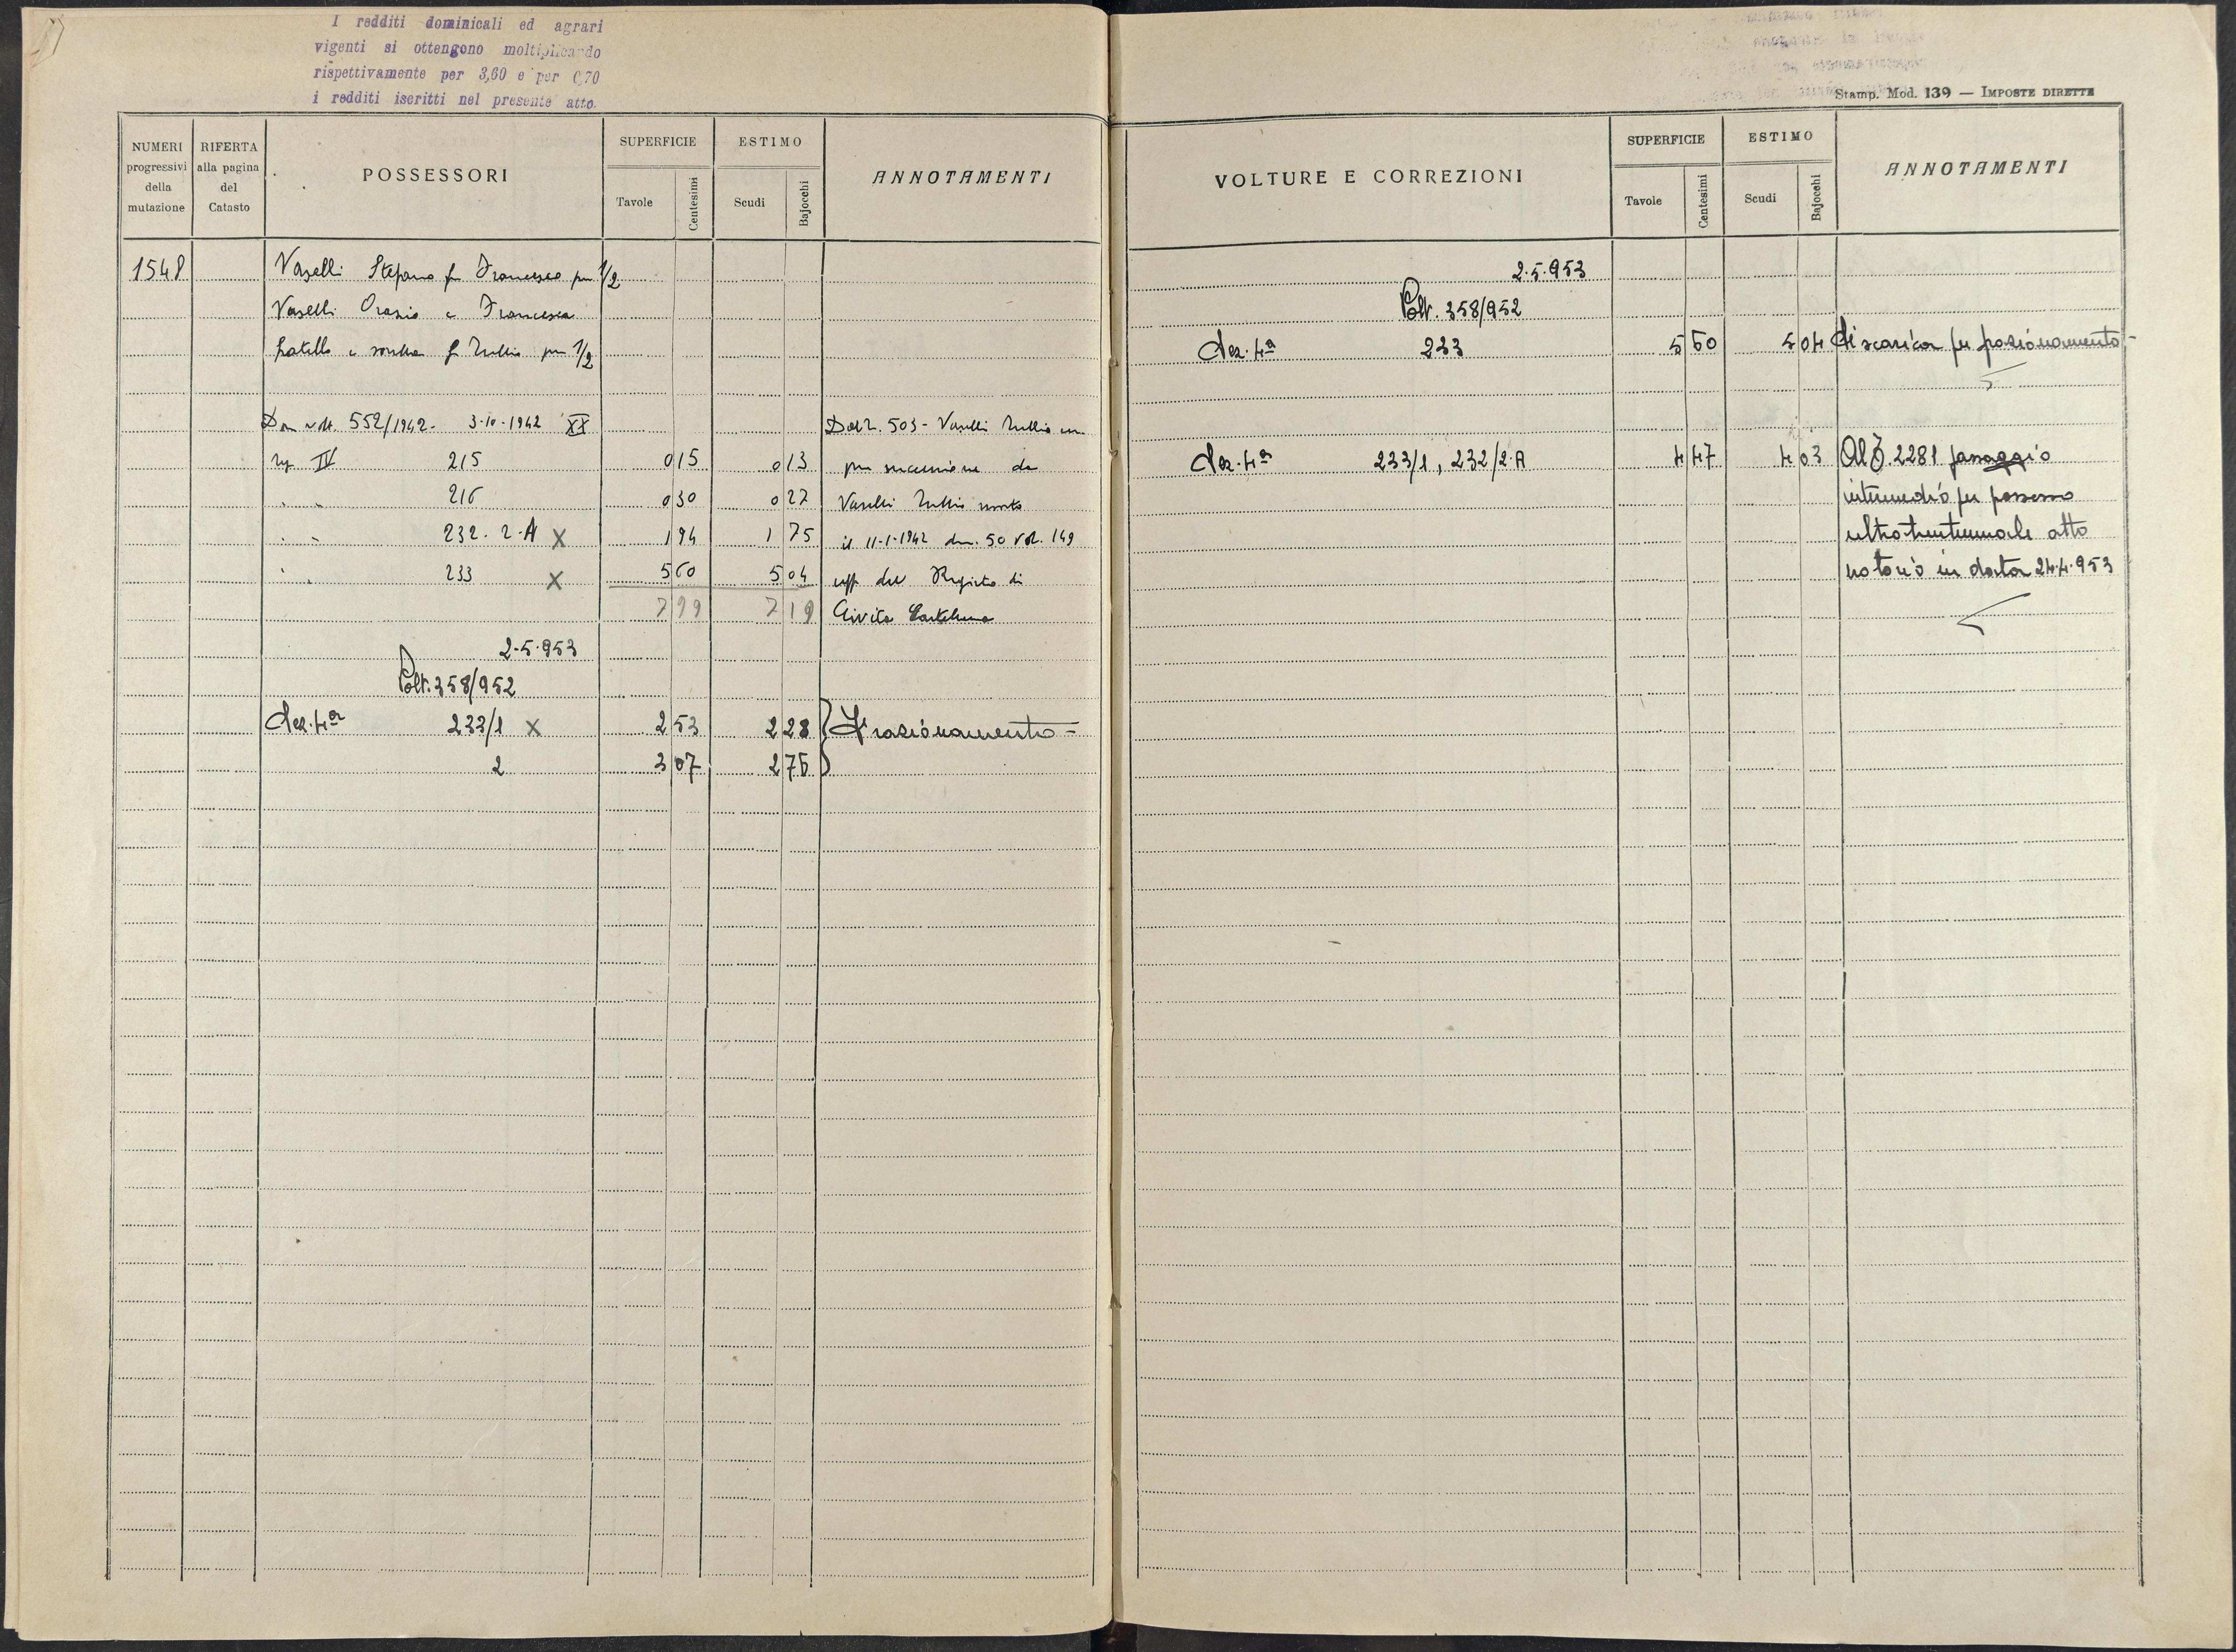 I redditi dominicali ed agrari
vigenti si ottengono moltiplicando
rispettivamente per 3,60 e per 0,70
i redditi iscritti nel presente atto.
NUMERI progressivi della mutazione
RIFERTA alla pagina del Catasto
POSSESSORI
SUPERFICIE
Tavole
Centesimi
ESTIMO
Scudi
Bajocchi
ANNOTAMENTI
1548 Vaselli Stefano fu Francesco per 1/2
Vaselli Orazio e Francesca
fratello e sorella fu Tullio per 1/2
Dom volt. 552/1942 - 3-10-1942 XX Dal N. 503 - Vaselli Tullio
IV 215 0 15 0 13 per successione da
" " 216 0 30 0 27 Vaselli Tullio morto
" " 232-2-A X 1 94 1 75 il 11-1-1942 den. 50 vol. 149
" " 233 X 5 60 5 04 uff del Registro di
7 99 7 19 Civita Castellana
2-5-953
Volt. 358/952
Sez. 4a 233/1 X 2 53 2 28 Frazionamento -
2 3 07 2 76
Stamp. Mod. 139 — IMPOSTE DIRETTE
VOLTURE E CORREZIONI
SUPERFICIE
Tavole
Centesimi
ESTIMO
Scudi
Bajocchi
ANNOTAMENTI
2-5-953
Volt. 358/952
Sez. 4a 233 5 60 5 04 Si scarica per frazionamento -
Sez. 4a 233/1, 232/2-A 4 47 4 03 Al N. 2281 passaggio
intermedio per possesso
ultratrentennale atto
notorio in data 24-4-953